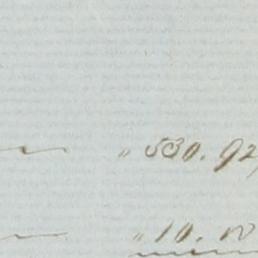 " 530. 92
" 10. 10